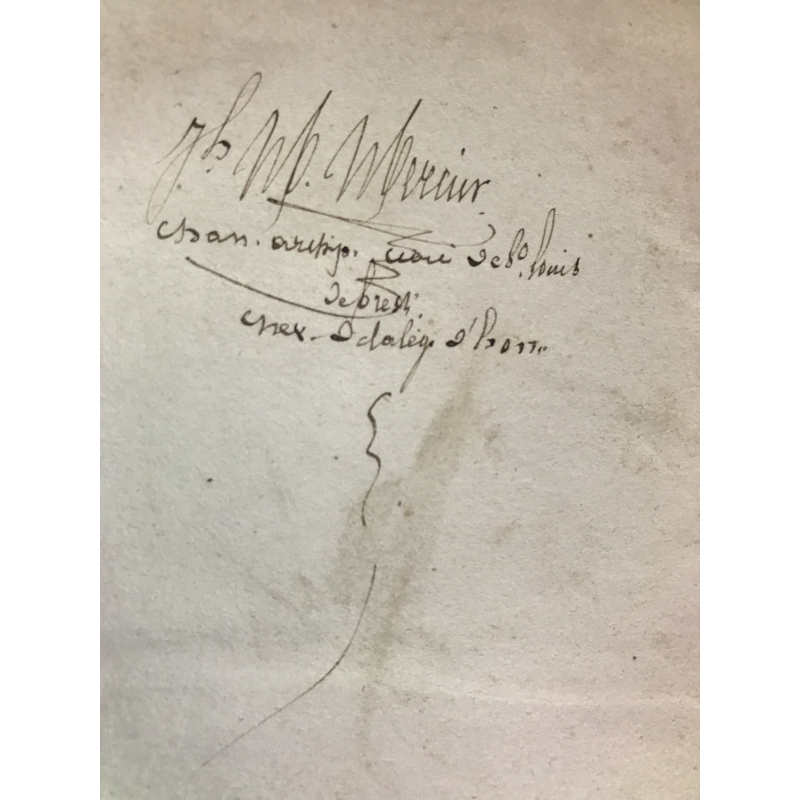 Jh M. Mercier
chan. archip. curé de St. Louis
de Brest.
chev. de la lég. d'hon..